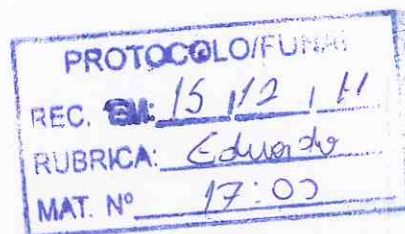 PROTOCOLO/FUNAI
REC. EM: 15 / 12 / 11
RUBRICA: Eduardo
MAT. Nº 17:00